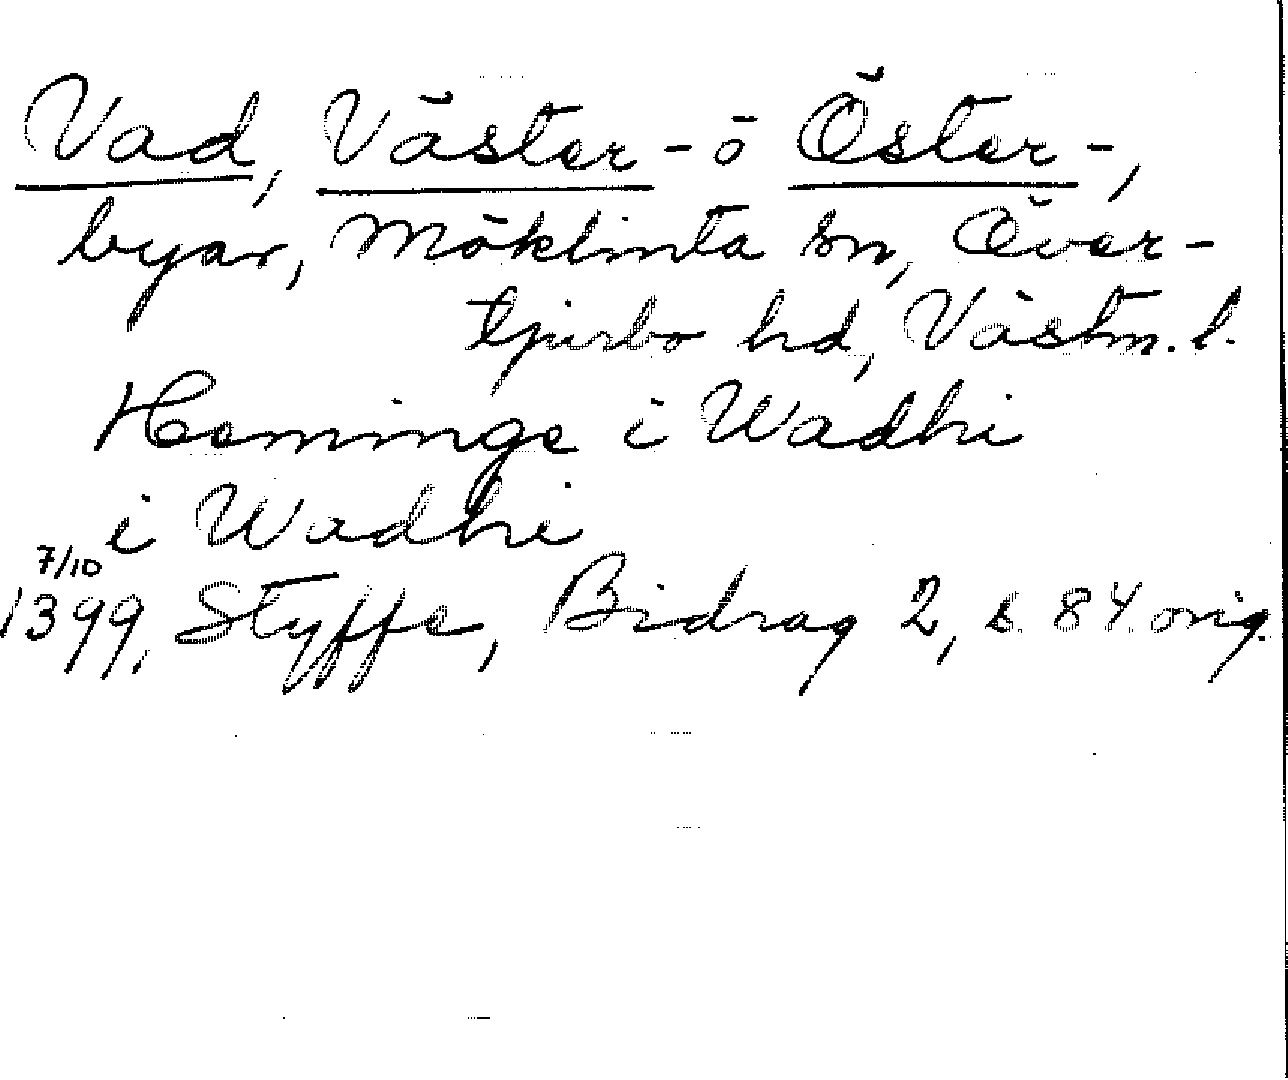 Vad, Väster- o Öster-,
byar, Möklinta sn, Över-
tjurbo hd, Västm. l.
Heminge i Wadhi
i Wadhi
7/10
1399, Styffe, Bidrag 2, s. 84. orig.